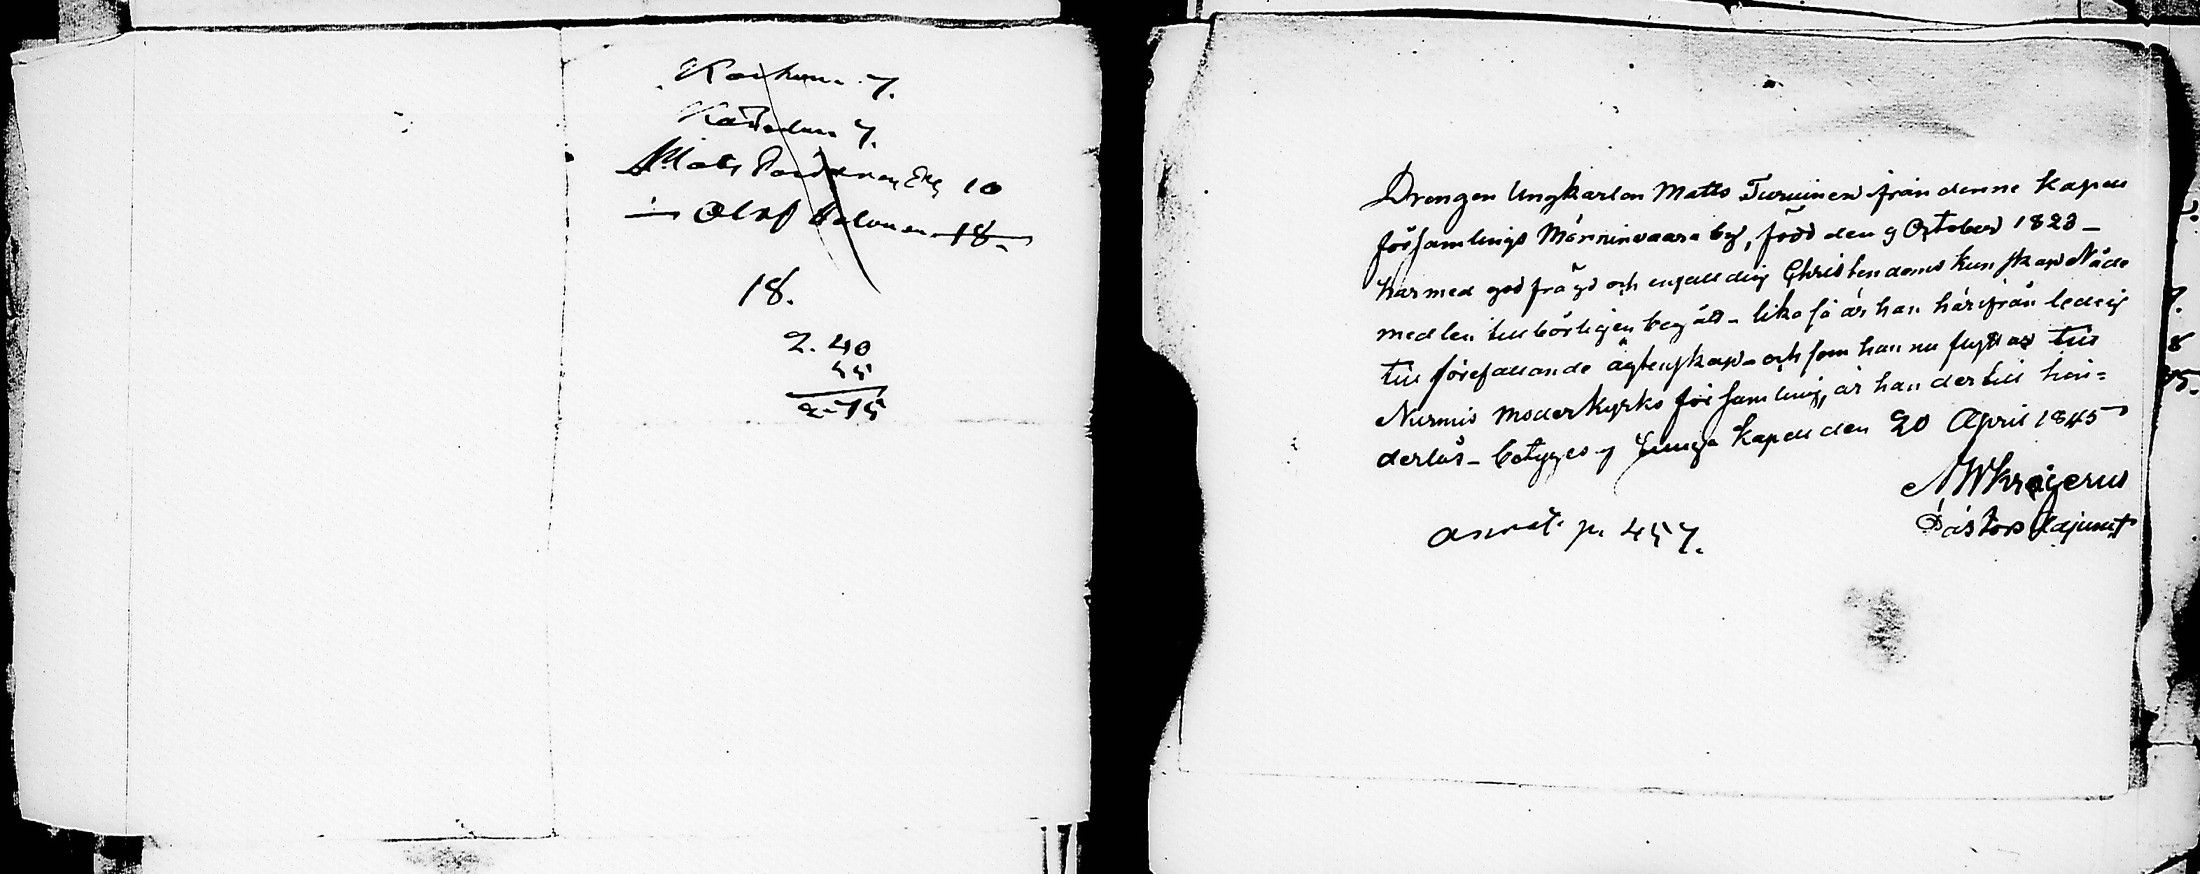 7.
7.
Mats 10
Olof 18.
18.
2. 40
2-75
Drengen Ungkarlen Matts Turuinen från denne Kapell
församlings Mörninvaara by, född den 9 October 1823 -
har med god frägd och enfalldig Christendoms kunskap Nåde
medlen tillbörligen begådt - lika så är han härifrån ledeig
till förefallande ägtenskap - och som han nu flyttar till
Nurmis Moderkyrko församling, är han dertill hin=
derlös - betyges af Juuga Kapell den 20 April 1845
AWKrogerus
Pastors Adjunct
p. 457.